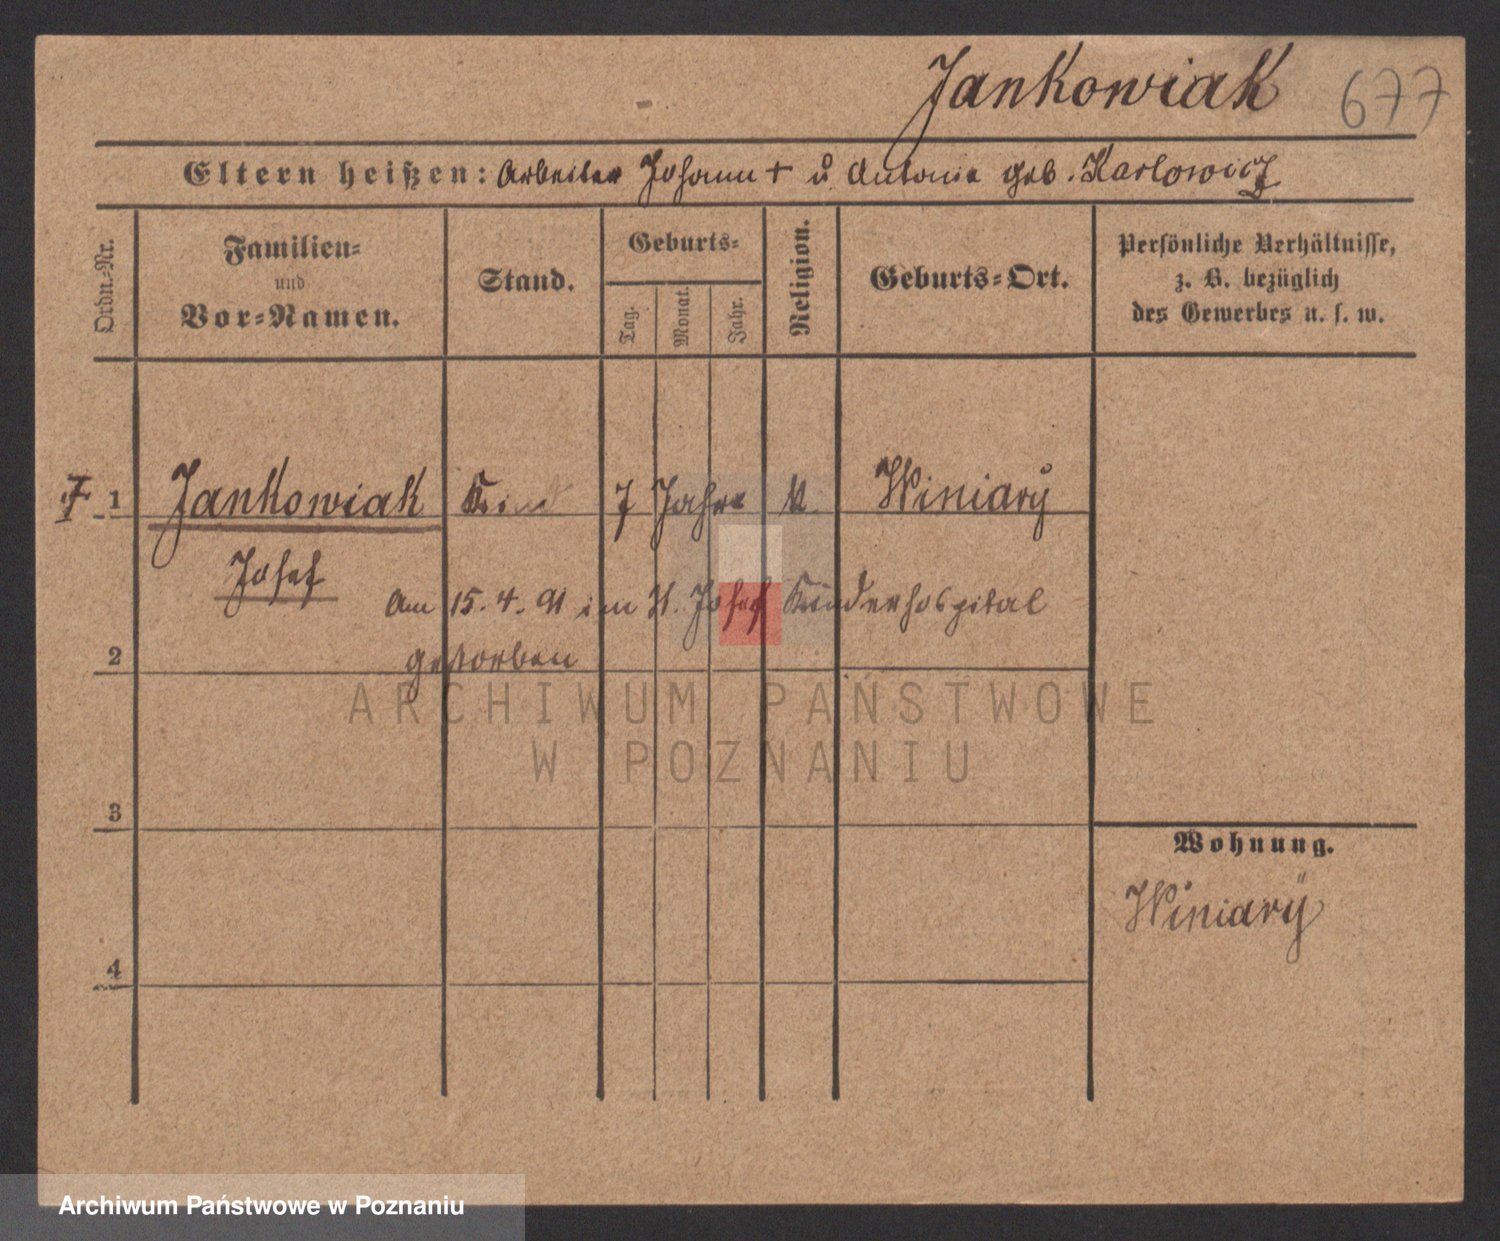 Jankowiak 677
Eltern heißen: Arbeiter Johann + u. Antonie geb. Karlowicz
Ordn.-Nr.
Familien-
und
Vor-Namen.
Stand.
Geburts-
Tag.
Monat.
Jahr.
Religion.
Geburts-Ort.
Persönliche Verhältnisse,
z. B. bezüglich
des Gewerbes u. s. w.
1 Jankowiak Kind 7 Jahre k. Winiary
Josef
Am 15.4.91 im St. Josef Kinderhospital
2 gestorben
ARCHIWUM PAŃSTWOWE
W POZNANIU
3
Wohnung.
Winiary
4
Archiwum Państwowe w Poznaniu